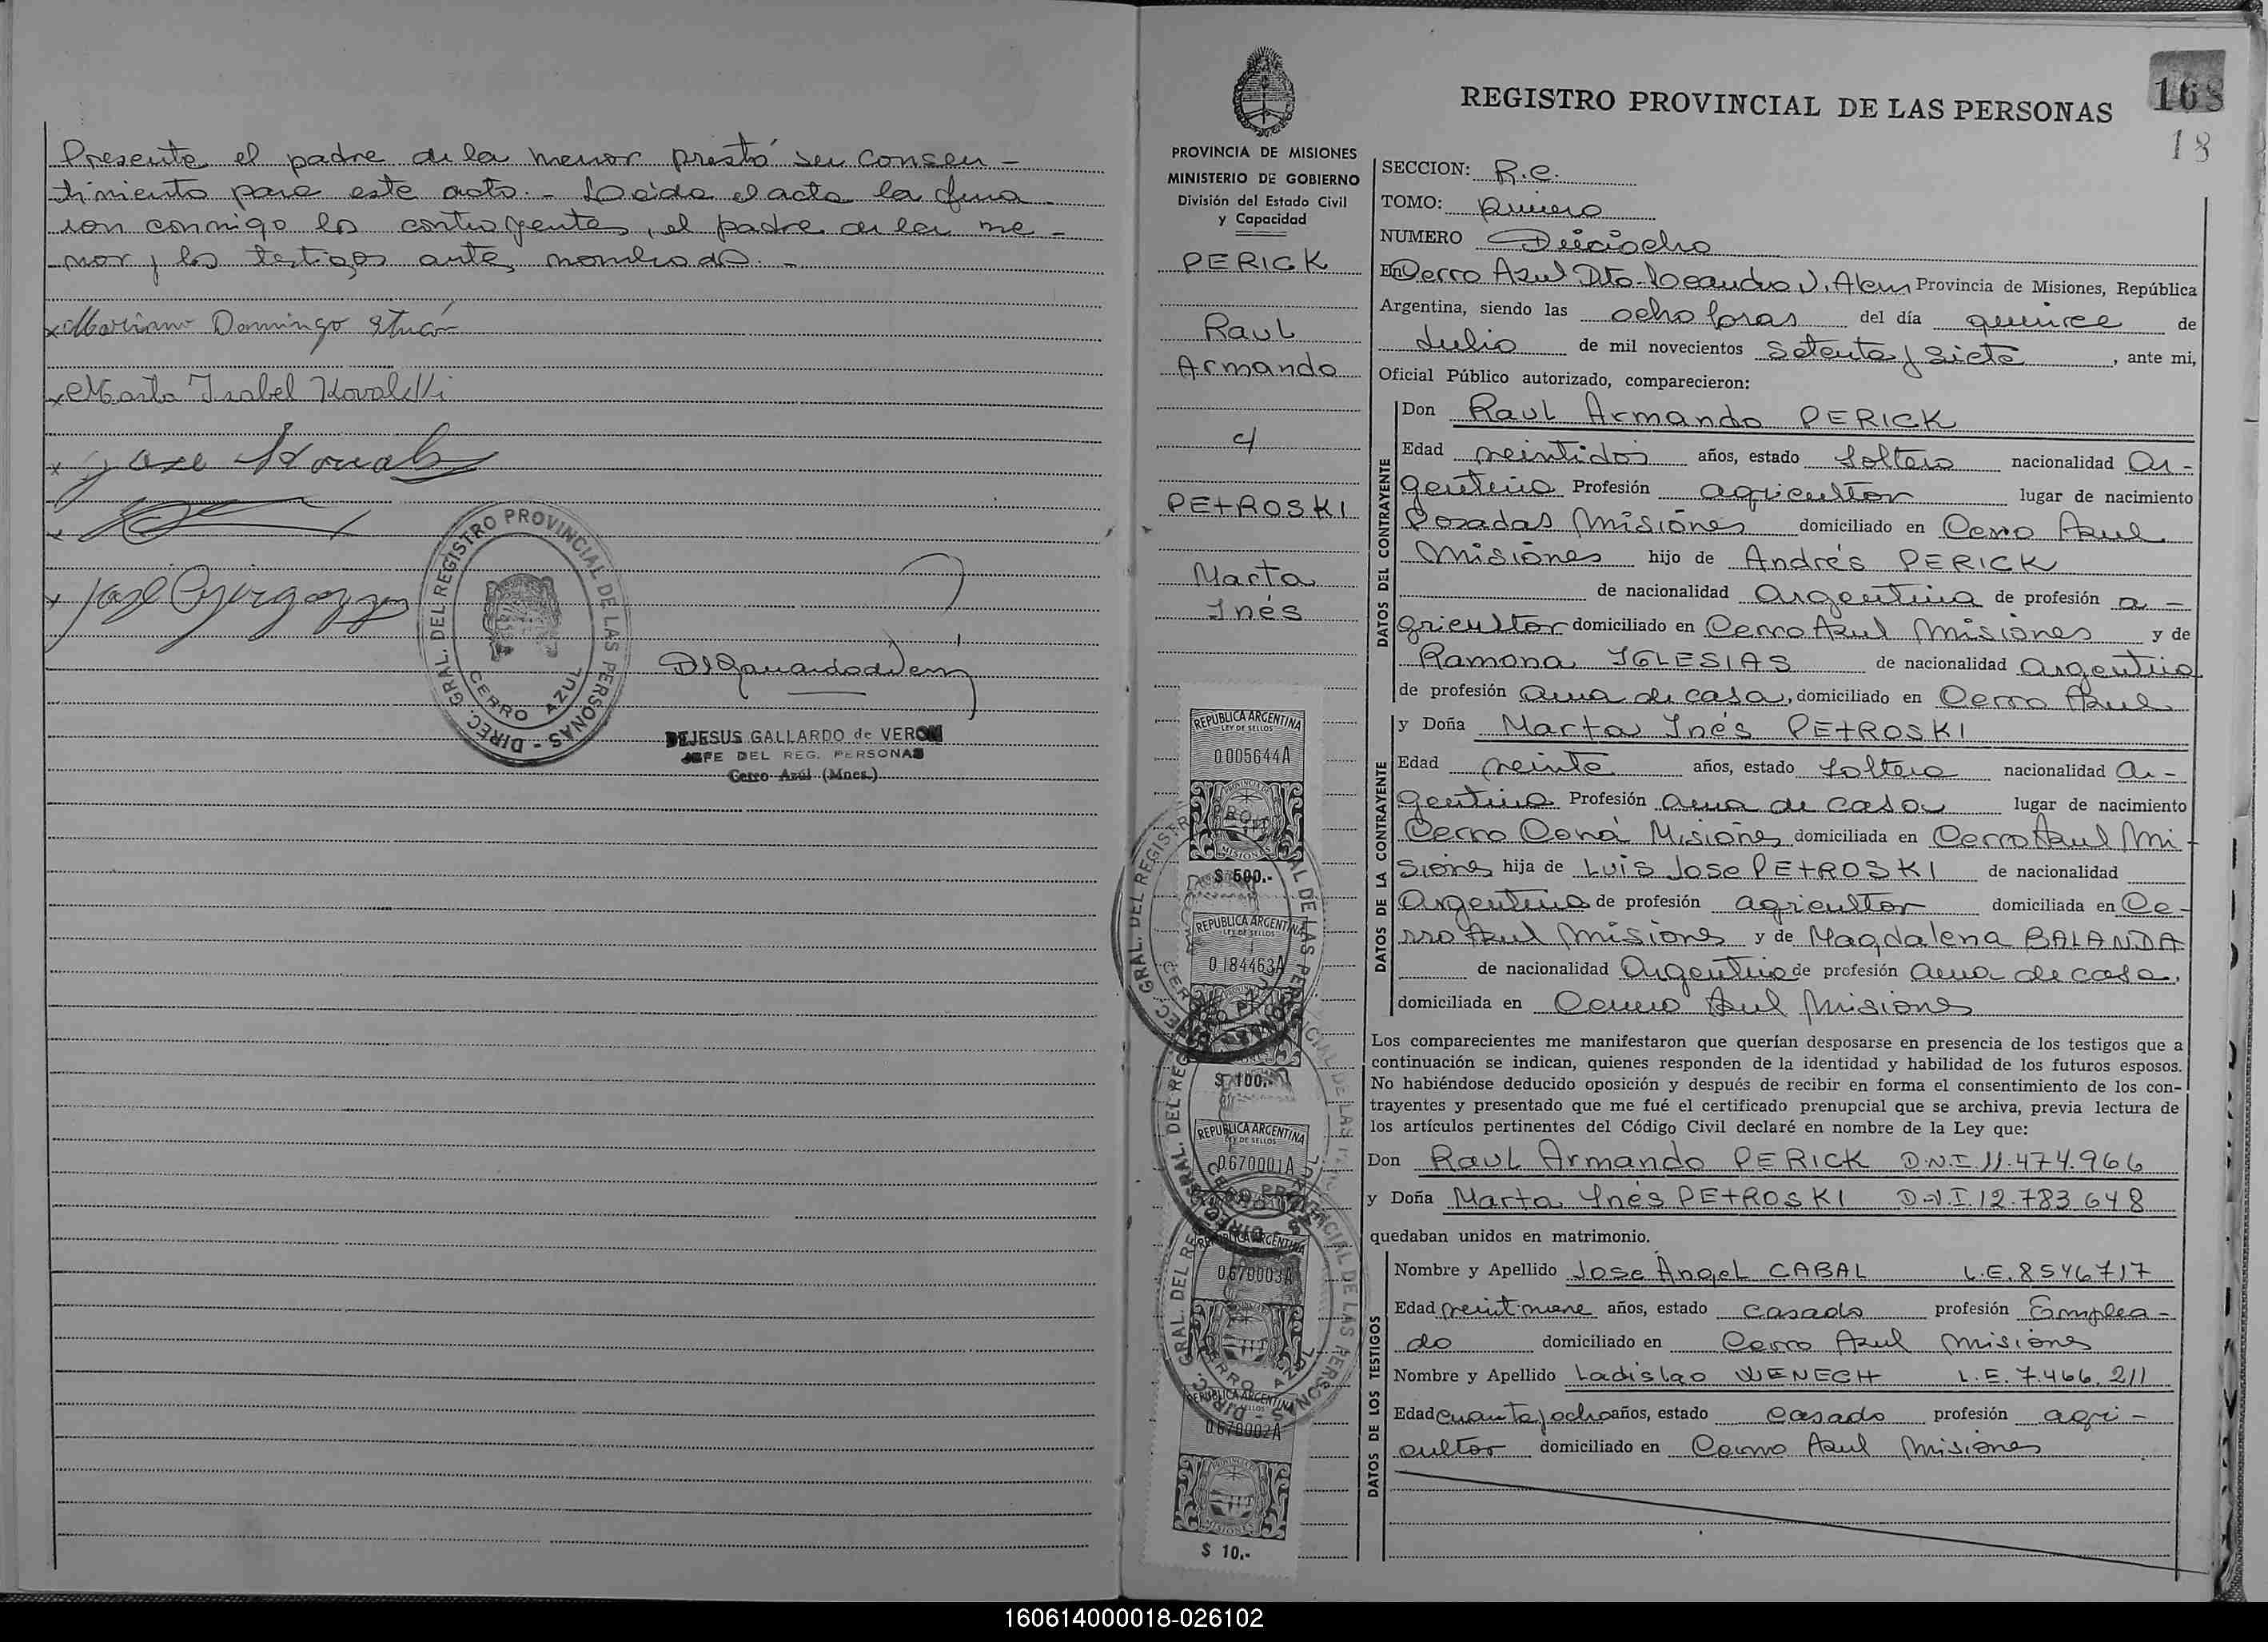 Presente el padre de la menor prestó su consen-
timiento para este acto.- Leída el acta la firma
ron conmigo los contrayentes, el padre de la me-
nor y los testigos antes nombrados.-
x Mariano Domingo
x Marta Isabel
x Jose
x
x Jose
DIREC. GRAL. DEL REGISTRO PROVINCIAL DE LAS PERSONAS
CERRO AZUL
DEJESUS GALLARDO de VERON
JEFE DEL REG. PERSONAS
Cerro Azúl (Mnes.)
168
18
REGISTRO PROVINCIAL DE LAS PERSONAS
PROVINCIA DE MISIONES
MINISTERIO DE GOBIERNO
División del Estado Civil
y Capacidad
PERICK
Raul
Armando
c/
PETROSKI
Marta
Inés
REPUBLICA ARGENTINA
LEY DE SELLOS
0.005644A
MISIONES
$ 500.-
REPUBLICA ARGENTINA
LEY DE SELLOS
0.184463A
$ 100.-
REPUBLICA ARGENTINA
LEY DE SELLOS
0.670001A
REPUBLICA ARGENTINA
0.670003A
REPUBLICA ARGENTINA
0.670002A
MISIONES
$ 10.-
SECCION: R.C.
TOMO: Primero
NUMERO Dieciocho
En Cerro Azul Dto. Leandro N. Alem Provincia de Misiones, República
Argentina, siendo las ocho horas del día quince de
Julio de mil novecientos Setenta y Siete, ante mi,
Oficial Público autorizado, comparecieron:
DATOS DEL CONTRAYENTE
Don Raul Armando PERICK
Edad veintidos años, estado Soltero nacionalidad Ar-
gentino Profesión agricultor lugar de nacimiento
Posadas Misiones domiciliado en Cerro Azul
Misiones hijo de Andrés PERICK
de nacionalidad Argentina de profesión a-
gricultor domiciliado en Cerro Azul Misiones y de
Ramona IGLESIAS de nacionalidad Argentina
de profesión ama de casa, domiciliado en Cerro Azul
DATOS DE LA CONTRAYENTE
y Doña Marta Inés PETROSKI
Edad veinte años, estado Soltera nacionalidad Ar-
gentina Profesión ama de casa lugar de nacimiento
Cerro Corá Misiones domiciliada en Cerro Azul Mi-
siones hija de Luis Jose PETROSKI de nacionalidad
Argentina de profesión agricultor domiciliada en Ce-
rro Azul Misiones y de Magdalena BALANDA
de nacionalidad Argentina de profesión ama de casa,
domiciliada en Cerro Azul Misiones
Los comparecientes me manifestaron que querían desposarse en presencia de los testigos que a
continuación se indican, quienes responden de la identidad y habilidad de los futuros esposos.
No habiéndose deducido oposición y después de recibir en forma el consentimiento de los con-
trayentes y presentado que me fué el certificado prenupcial que se archiva, previa lectura de
los artículos pertinentes del Código Civil declaré en nombre de la Ley que:
Don Raul Armando PERICK D.N.I 11.474.966
y Doña Marta Inés PETROSKI D.N.I. 12.783.648
quedaban unidos en matrimonio.
DATOS DE LOS TESTIGOS
Nombre y Apellido Jose Angel CABAL L.E. 8546717
Edad veintinueve años, estado casado profesión Emplea-
do domiciliado en Cerro Azul Misiones
Nombre y Apellido Ladislao WENECH L.E. 7.466.211
Edad cuarenta y ocho años, estado casado profesión agri-
cultor domiciliado en Cerro Azul Misiones
160614000018-026102